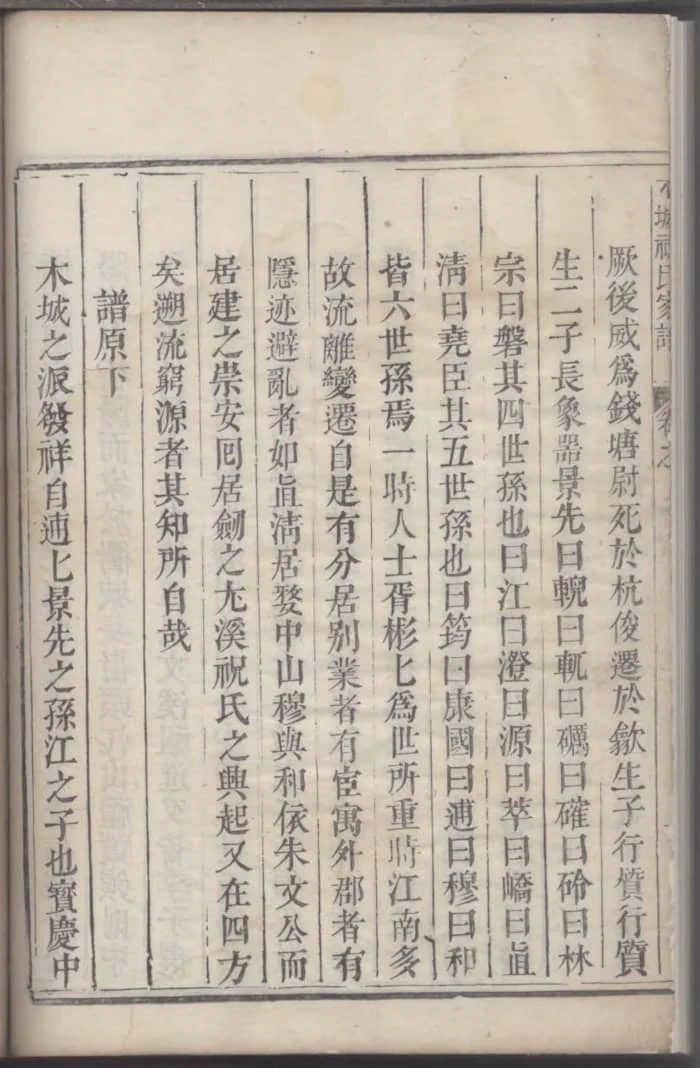 木城祝氏家譜 卷之一
厥後威爲錢塘尉死於杭俊遷於歙生子行質行質
生二子長象器景先曰輗曰軏曰礪曰確曰砱曰林
宗曰磐其四世孫也曰江曰澄曰源曰萃曰嶠曰直
淸曰堯臣其五世孫也曰筠曰康國曰逋曰穆曰和
皆六世孫焉一時人士胥彬匕爲世所重時江南多
故流離變遷自是有分居别業者有宦寓外郡者有
隱迹避亂者如直淸居婺中山穆與和依朱文公而
居建之崇安囘居劒之尤溪祝氏之興起又在四方
矣遡流窮源者其知所自哉
譜原下
木城之派發祥自逋匕景先之孫江之子也寳慶中